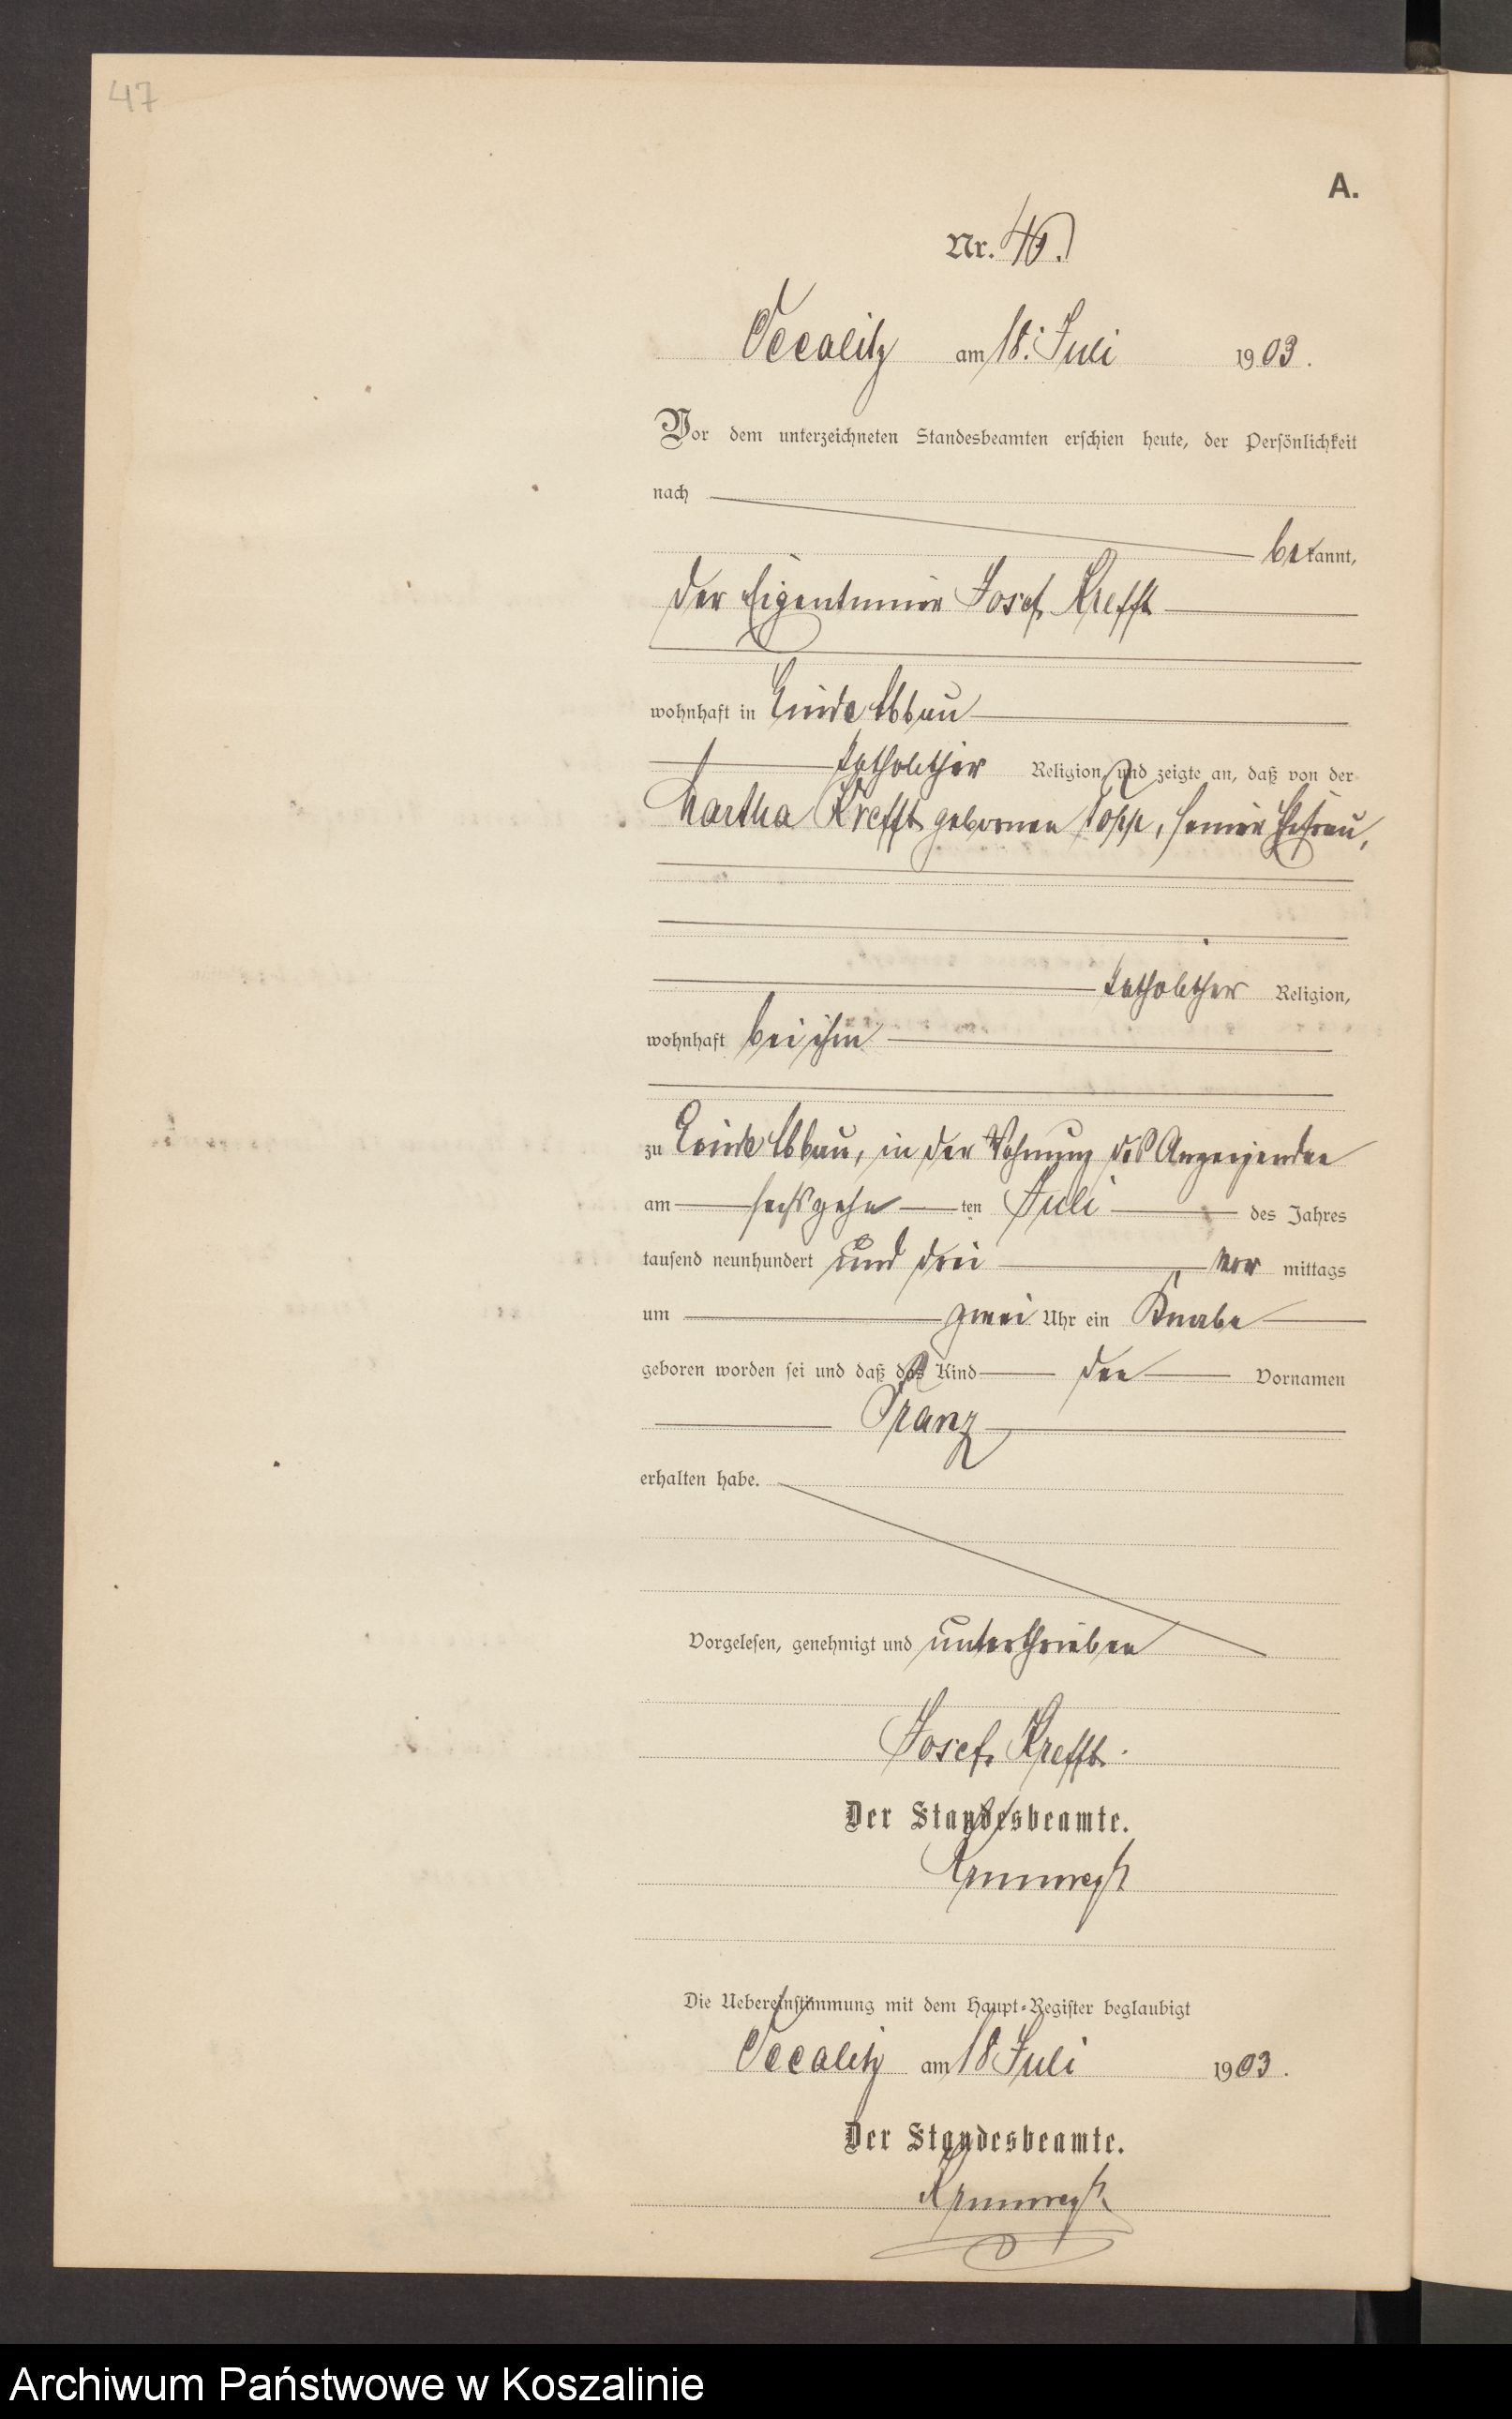 47
A.
Nr. 46.
Oecalitz am 18. Juli 1903.
Vor dem unterzeichneten Standesbeamten erschien heute, der Persönlichkeit
nach
bekannt,
der Eigentümer Josef Krefft
wohnhaft in Abbau
katholischer Religion, und zeigte an, daß von der
Martha Krefft gebornen Topp, seiner Ehefrau,
katholischer Religion,
wohnhaft bei ihm
zu Abbau, in der Wohnung des Anzeigenden
am sechszehn ten Juli des Jahres
tausend neunhundert und drei vor mittags
um zwei Uhr ein Knabe
geboren worden sei und daß das Kind den Vornamen
Franz
erhalten habe.
Vorgelesen, genehmigt und unterschrieben
Josef Krefft.
Der Standesbeamte.
Die Uebereinstimmung mit dem Haupt-Register beglaubigt
Oecalitz am 18 Juli 1903.
Der Standesbeamte.
Archiwum Państwowe w Koszalinie